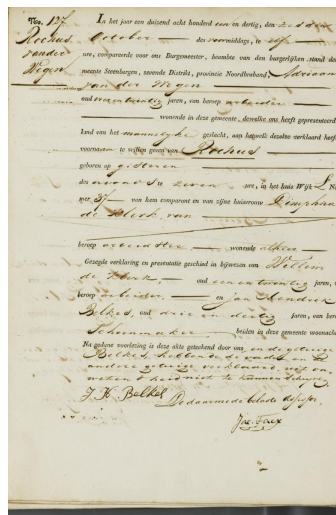 No. 127.
Rochus
vander
Wegen
In het jaar een duisend acht honderd een en dertig, den zesden
October des voormiddags, te elf
ure, compareerde voor ons Burgemeester, beambte van den burgerlijken stand de
meente Steenbergen, zevende Distrikt, provincie Noordbraband, Adriaan
van der Wegen
oud jaren, van beroep arbeider
wonende in deze gemeente, dewelke ons heeft gepresenteerd
kind van het mannelyke geslacht, aan hetwelk dezelve verklaard heeft
voornaam te willen geven van Rochus
geboren op gisteren
des avonds te zeven ure, in het huis Wijk L N
mer 37 van hem comparant en van zijne huisvrouw
de Klerk, van
beroep arbeidster wonende alhier
Gezegde verklaring en presentatie geschied in bijwezen van Willem
de Klerk, oud een en twintig jaren,
beroep arbeider, en Jan Hendrik
Belkes, oud drie en dertig jaren, van bero
Schoenmaker, beiden in deze gemeente woonach
Na gedane voorlezing is deze akte geteekend door ons en de getuige
Belkes, hebbende de vader en de
andere getuige verklaard, uit on
niet te kunnen schryven
J. H. Belkes
De daarmede belaste
Jac.